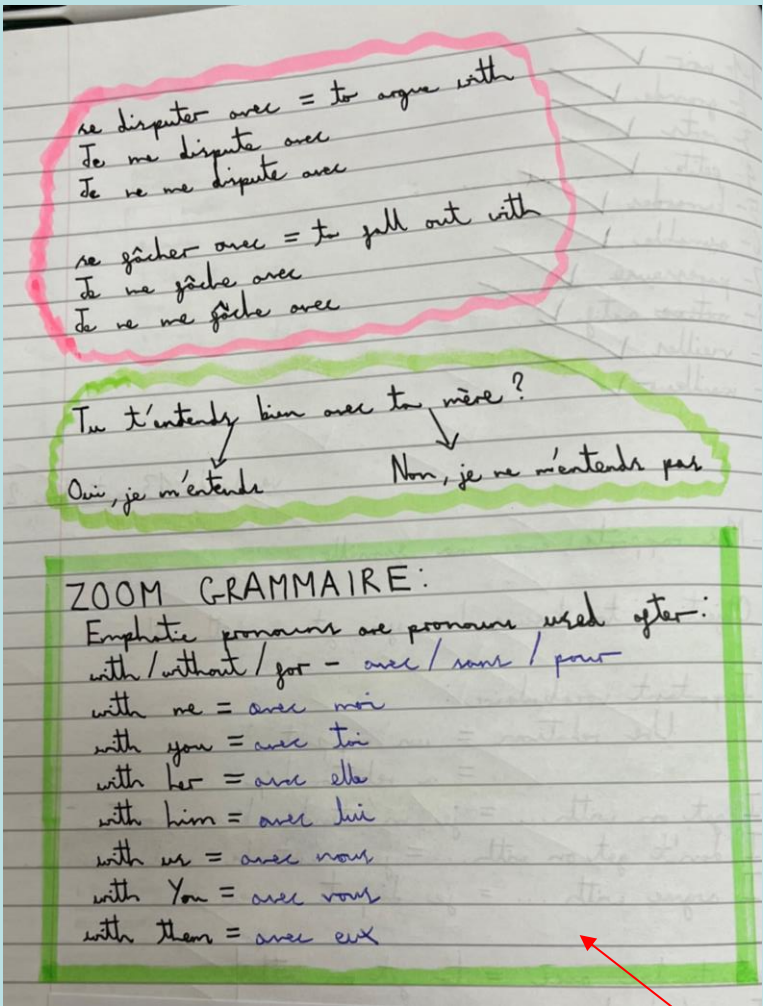 se disputer avec = to argue with
Je me dispute avec
Je ne me dispute avec
se gâcher avec = to fall out with
Je me gâche avec
Je ne me gâche avec
Tu t'entends bien avec ta mère ?
Oui, je m'entends
Non, je ne m'entends pas
ZOOM GRAMMAIRE:
Emphatic pronouns are pronouns used after:
with/without/for - avec/sans/pour
with me = avec moi
with you = avec toi
with her = avec elle
with him = avec lui
with us = avec nous
with You = avec vous
with them = avec eux